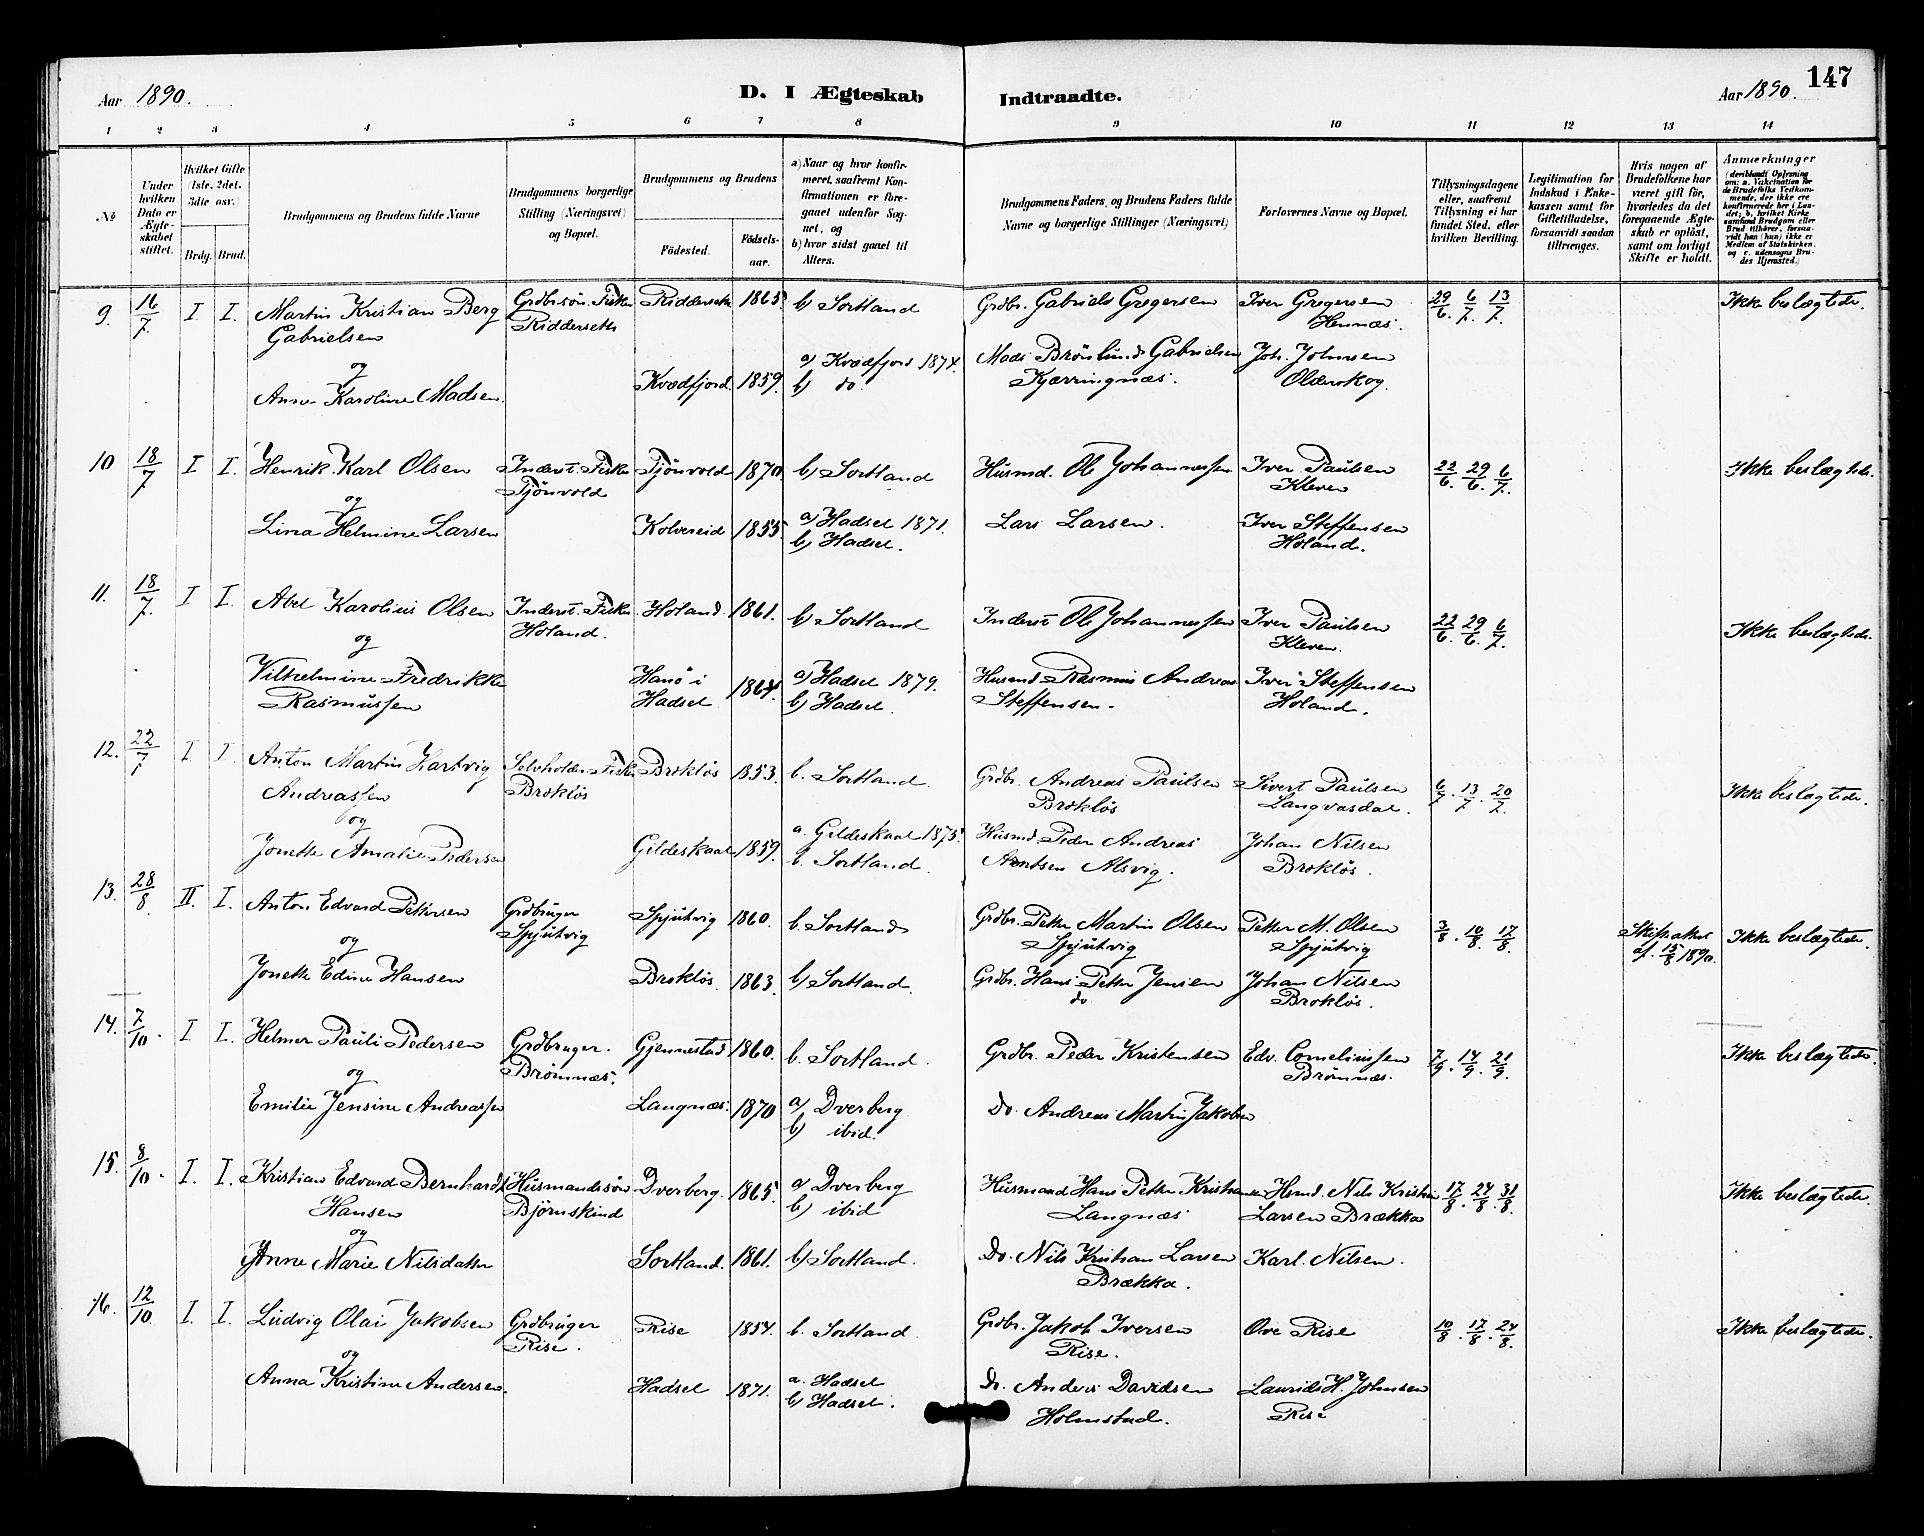 147
Aar 1890.
D. I Ægteskab Indtraadte.
Aar 1890.
1 2 3 4 5 6 7 8 9 10 11 12 13 14
№
Under hvilken Dato er Ægteskabet stiftet.
Hvilket Gifte 1ste, 2det, 3die osv.)
Brdg. Brud.
Brudgommens og Brudens fulde Navne
Brudgommens borgerlige Stilling (Næringsvei) og Bopæl.
Brudgommens og Brudens
Födested.
Födselsaar.
a) Naar og hvor konfirmeret, saafremt Konfirmationen er foregaaet udenfor Sognet, og
b) hvor sidst gaaet til Alters.
Brudgommens Faders, og Brudens Faders fulde Navne og borgerlige Stillinger (Næringsvei)
Forlovernes Navne og Bopæl.
Tillysningsdagene eller, saafremt Tillysning ei har fundet Sted, efter hvilken Bevilling.
Legitimation for Indskud i Enkekassen samt for Giftetilladelse, forsaavidt saadan tiltrænges.
Hvis nogen af Brudefolkene har været gift för, hvorledes da det foregaaende Ægteskab er oplöst, samt om lovligt Skifte er holdt.
Anmærkninger
(deriblandt Oplysning om: a. Vakcination for de Brudefolks Vedkommende, der ikke ere konfirmerede her i Landet; b. hvilket Kirkesamfund Brudgom eller Brud tilhører, forsaavidt han (hun) ikke er Medlem af Statskirken, og c. udensogns Brudes Hjemsted.)
9. 16/7 I I. Martin Kristian Berg Grdbrsön. Fisker Ridderseth 1865. b) Sortland Grdbr. Gabriels Gregersen Iver Gregersen 29/6. 6/7. 13/7. Ikke beslægtede.
Gabrielsen Ridderseth Hennæs.
og
Anne Karoline Madsen. Kvædfjord. 1859. a) Kvædfjord 1874. b) do. Mads Brönlund Gabrielsen Kjærringnæs. Joh. Johnsen Olderskog.
10 18/7 I I. Henrik Karl Olsen Inderst. Fisker Tjönvold 1870. b) Sortland Husmd. Ole Johannessen Iver Paulsen 22/6. 29/6. 6/7. Ikke beslægtede.
og Tjönvold Kleven
Lina Helmine Larsen Kolvereid 1855. a) Hadsel 1871. b) Hadsel. Lars Larsen. Iver Steffensen Holand.
11. 18/7. I I. Abel Karolius Olsen Inderst. Fisker Holand 1861. b) Sortland Inderst Ole Johannessen Iver Paulsen 22/6. 29/6. 6/7. Ikke beslægtede.
og Holand. Kleven.
Vilhelmine Fredrikke Hanö i 1864. a) Hadsel 1879. Husmd. Rasmus Andreas Iver Steffensen
Rasmussen Hadsel b) Hadsel. Steffensen. Holand.
12. 22/7 I I Anton Martin Hartvig Selvholder Fisker Brokløs 1853. b. Sortland Grdbr. Andreas Paulsen Sivert Paulsen 6/7. 13/7. 20/7. Ikke beslægtede.
Andreassen Brokløs Brokløs Langvasdal.
og
Jonette Amalie Pedersen Gildeskaal 1859. a. Gildeskaal 1875. Husmd. Peder Andreas Johan Nilsen
b. Sortland. Arntsen Alsvig. Brokløs.
13. 28/8. II. I. Anton Edvard Pettersen Grdbruger Spjutvig 1860. b. Sortland Grdbr. Petter Martin Olsen Petter M. Olsen 3/8. 10/8. 17/8. Skifteattest Ikke beslægtede.
og Spjutvig Spjutvig Spjutvig af 15/8 1890.
Jonette Edine Hansen Brokløs 1863. b) Sortland. Grdbr. Hans Petter Jensen do Johan Nilsen Brokløs.
14. 7/10. I I. Helmer Pauli Pedersen Grdbruger. Gjennestad 1860. b. Sortland. Grdbr. Peder Kristensen Edv. Corneliussen 7/9. 14/9. 21/9. Ikke beslægtede.
og Brömnæs. Brömnæs.
Emilie Jensine Andreassen Langnæs. 1870 a) Dverberg b) ibid. Do. Andreas Martin Jakobsen
15. 8/10. I. I. Kristian Edvard Bernhardt Husmandssön Dverberg. 1865. a) Dverberg Husmand Hans Petter Kristiansen Husmd. Nils Kristian 17/8. 24/8. 31/8. Ikke beslægtede.
Hansen Bjørnskind b) ibid Langnæs Larsen Brækka
og
Anne Marie Nilsdatter Sortland. 1861. b) Sortland. Do. Nils Kristian Larsen Karl Nilsen.
Brækka.
16. 12/10. I. I. Ludvig Olai Jakobsen Grdbruger Rise 1854. b. Sortland Grdbr. Jakob Iversen Ove Rise 10/8. 17/8. 24/8. Ikke beslægtede.
og Rise. Rise.
Anna Kristine Andersen. Hadsel 1871. a. Hadsel Do. Anders Davidsen Laurids H. Johnsen
b) Hadsel. Holmstad. Rise